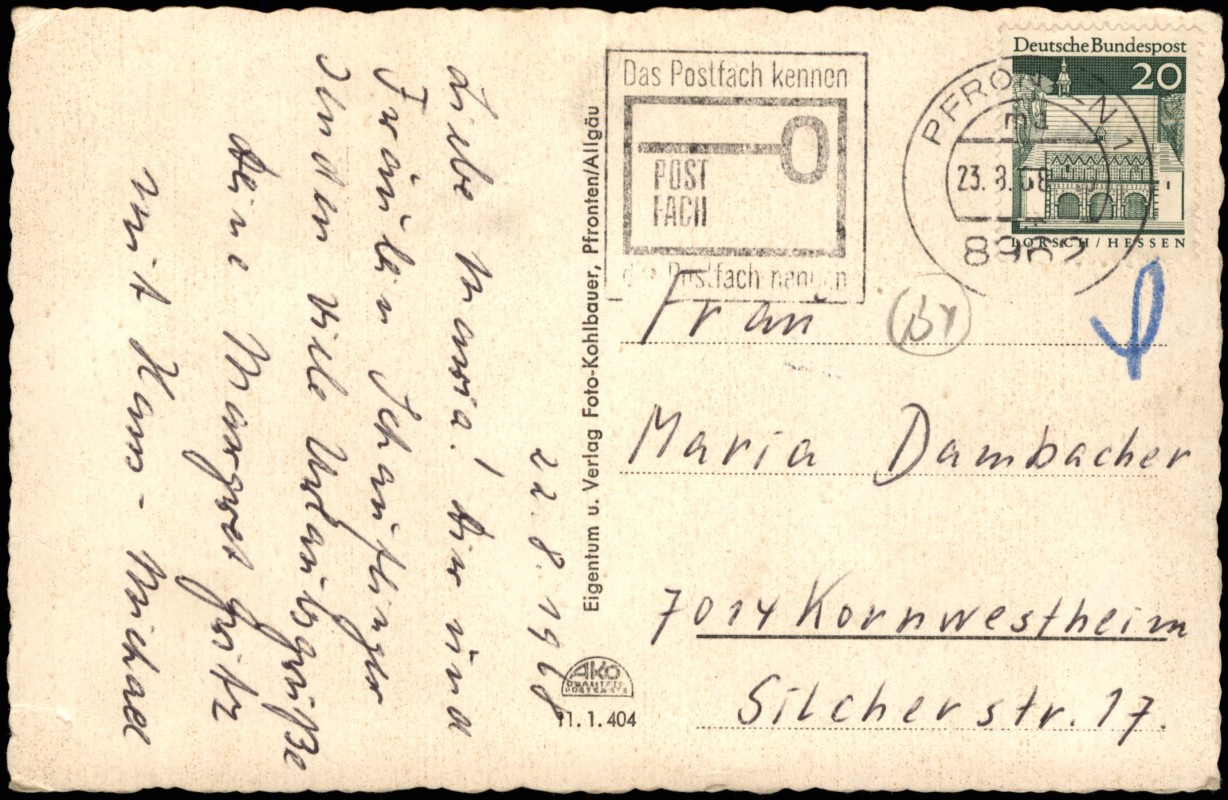 22. 8. 1968
Liebe Mama! Dir und
Fräulein Schauflinger
senden viele Urlaubsgrüße
Deine Margret Fritz
mit Hans-Michael
Eigentum u. Verlag Foto-Kohlbauer, Pfronten/Allgäu
AKO
QUALITÄTS
POSTKARTE
11. 1. 404
Das Postfach kennen
POST
FACH
die Postfach nennen
PFRONTEN 1
23. 8. 68
8962
Deutsche Bundespost
20
LORSCH / HESSEN
Frau
Maria Dambacher
7014 Kornwestheim
Silcherstr. 17.